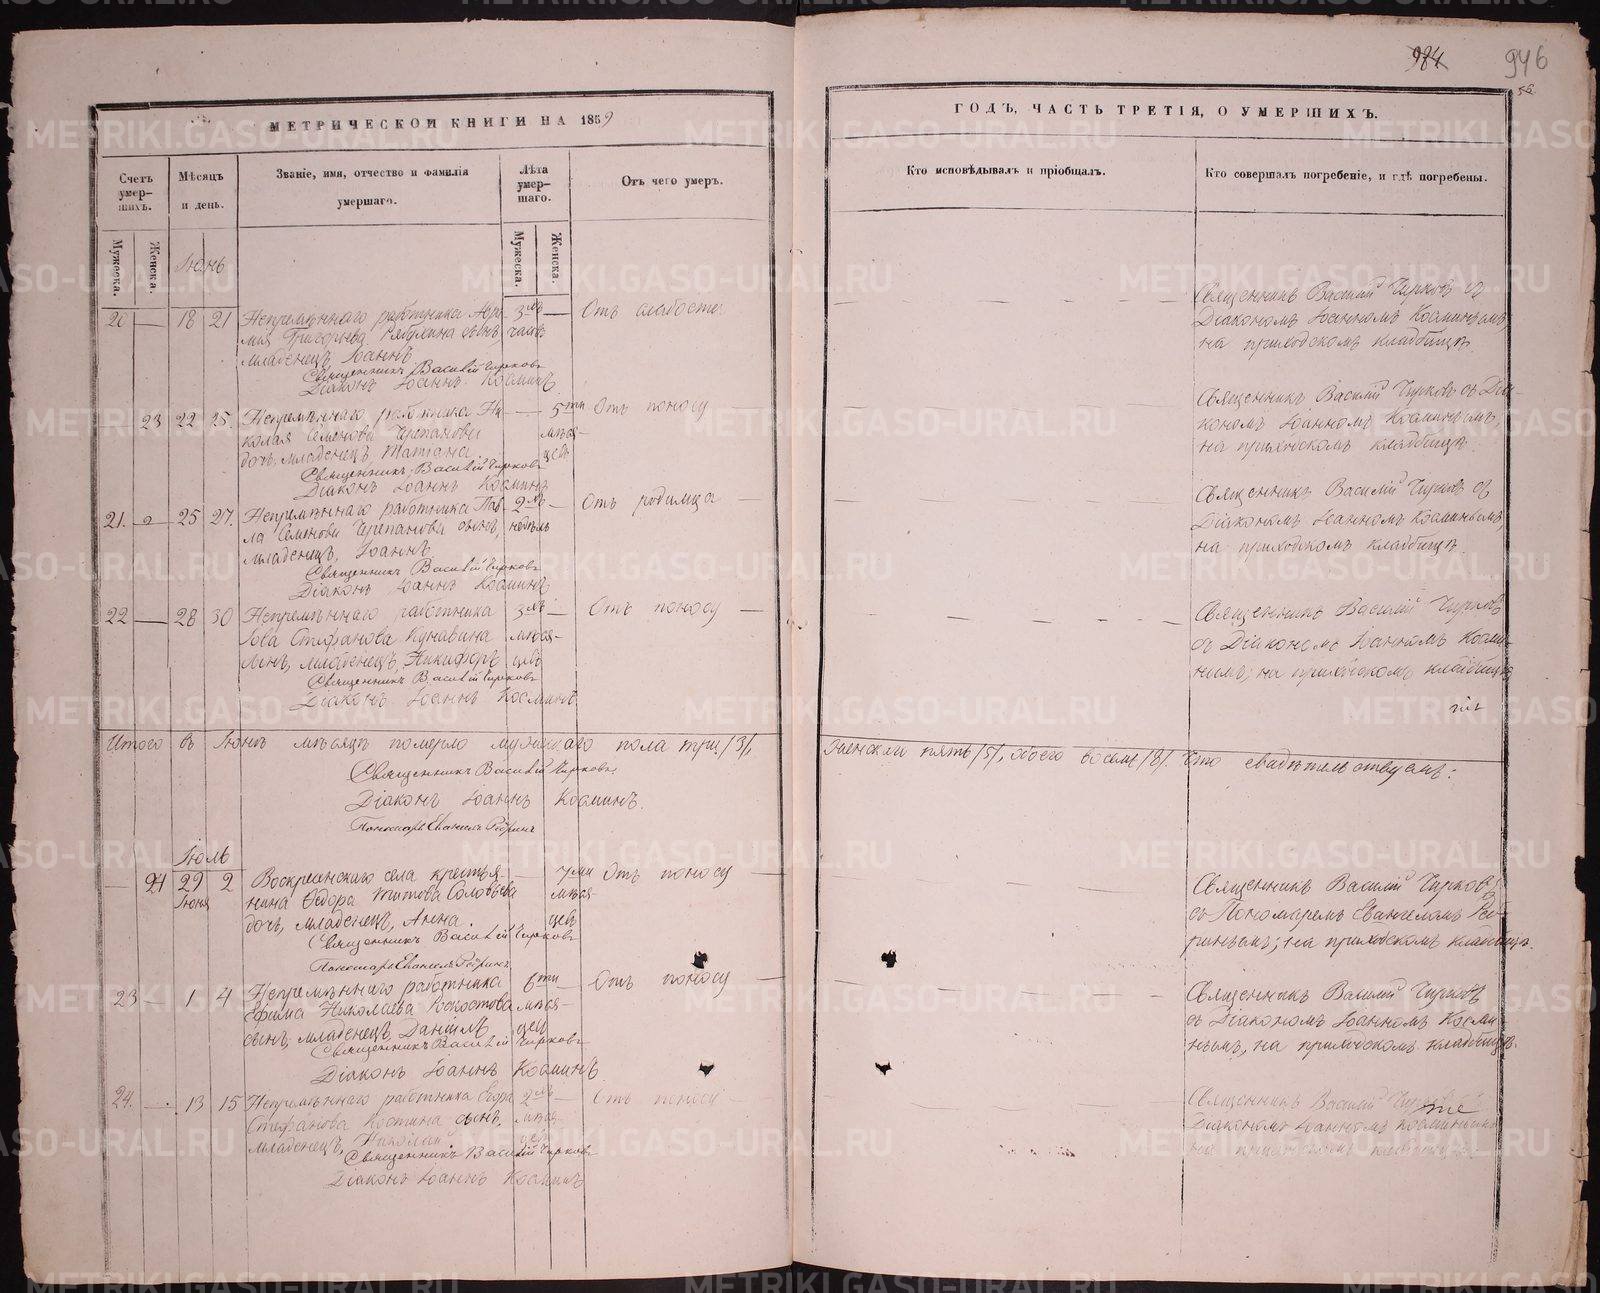 984 946
56
МЕТРИЧЕСКОЙ КНИГИ НА 1859
ГОДЪ, ЧАСТЬ ТРЕТІЯ, О УМЕРШИХЪ.
Счетъ умер-шихъ.
Мѣсяцъ и день.
Званіе, имя, отчество и фамилія умершаго.
Лѣта умер-шаго.
Отъ чего умеръ.
Кто исповѣдывалъ и пріобщалъ.
Кто совершалъ погребеніе, и гдѣ погребены.
Мужеска.
Женска.
Мужеска.
Женска.
Іюнь
18 21 Непремѣннаго работника
мія Григорьева сынъ, часъ
младенецъ Іоаннъ
Отъ слабости
Священникъ Василій Чирковъ
Діаконъ Іоаннъ Косминъ
Священникъ Василій Чирковъ съ
Діакономъ Іоанномъ Косминымъ,
на приходскомъ кладбищѣ.
23 22 25. Непремѣннаго работника Ни- 5ти Отъ поносу
колая Семенова Черепанова мѣся-
дочь, младенецъ, Татіана. цев
Священникъ Василій Чирковъ
Діаконъ Іоаннъ Косминъ
Священникъ Василій Чирковъ съ Діа-
кономъ Іоанномъ Косминымъ,
на приходскомъ кладбищѣ.
21. 25 27. Непремѣннаго работника Пав- 2хъ Отъ родимца
ла Семенова Черепанова сынъ, недѣль
младенецъ, Іоаннъ.
Священникъ Василій Чирковъ
Діаконъ Іоаннъ Косминъ
Священникъ Василій Чирковъ съ
Діакономъ Іоанномъ Косминымъ,
на приходскомъ кладбищѣ.
22 28 30 Непремѣннаго работника 3хъ Отъ поносу
Іова Стефанова Кунавина мѣся-
сынъ, младенецъ, Никифоръ цев
Священникъ Василій Чирковъ
Діаконъ Іоаннъ Косминъ
Священникъ Василій Чирковъ
съ Діакономъ Іоанномъ Косми-
нымъ, на приходскомъ кладбищѣ
Итого въ Іюнѣ мѣсяцѣ померло мужескаго пола три /3/,
женскаго пять /5/, обоего восемь /8/. Что свидѣтельствуемъ:
Священникъ Василій Чирковъ.
Діаконъ Іоаннъ Косминъ.
Пономарь Евангелъ Ребринъ
Іюль
24 29 2 Воскресенскаго села крестья- 7ми Отъ поносу
Іюня нина Ѳедора Титова Соловьева мѣся-
дочь, младенецъ, Анна. цев
Священникъ Василій Чирковъ
Пономарь Евангелъ Ребринъ
Священникъ Василій Чирковъ
съ Пономаремъ Евангеломъ Реб-
ринымъ, на приходскомъ кладбищѣ.
23 1 4 Непремѣннаго работника 6ти Отъ поносу
Ефима Николаева мѣся-
сынъ, младенецъ, Даніилъ цев
Священникъ Василій Чирковъ
Діаконъ Іоаннъ Косминъ
Священникъ Василій Чирковъ
съ Діакономъ Іоанномъ Косми-
нымъ, на приходскомъ кладбищѣ.
24. 13 15 Непремѣннаго работника 2хъ Отъ поносу
Стефанова Костина сынъ, мѣся-
младенецъ, Николай. цев
Священникъ Василій Чирковъ
Діаконъ Іоаннъ Косминъ
Священникъ Василій Чирковъ
Діакономъ Іоанномъ Косминымъ
на приходскомъ кладбищѣ.
METRIKI.GASO-URAL.RU